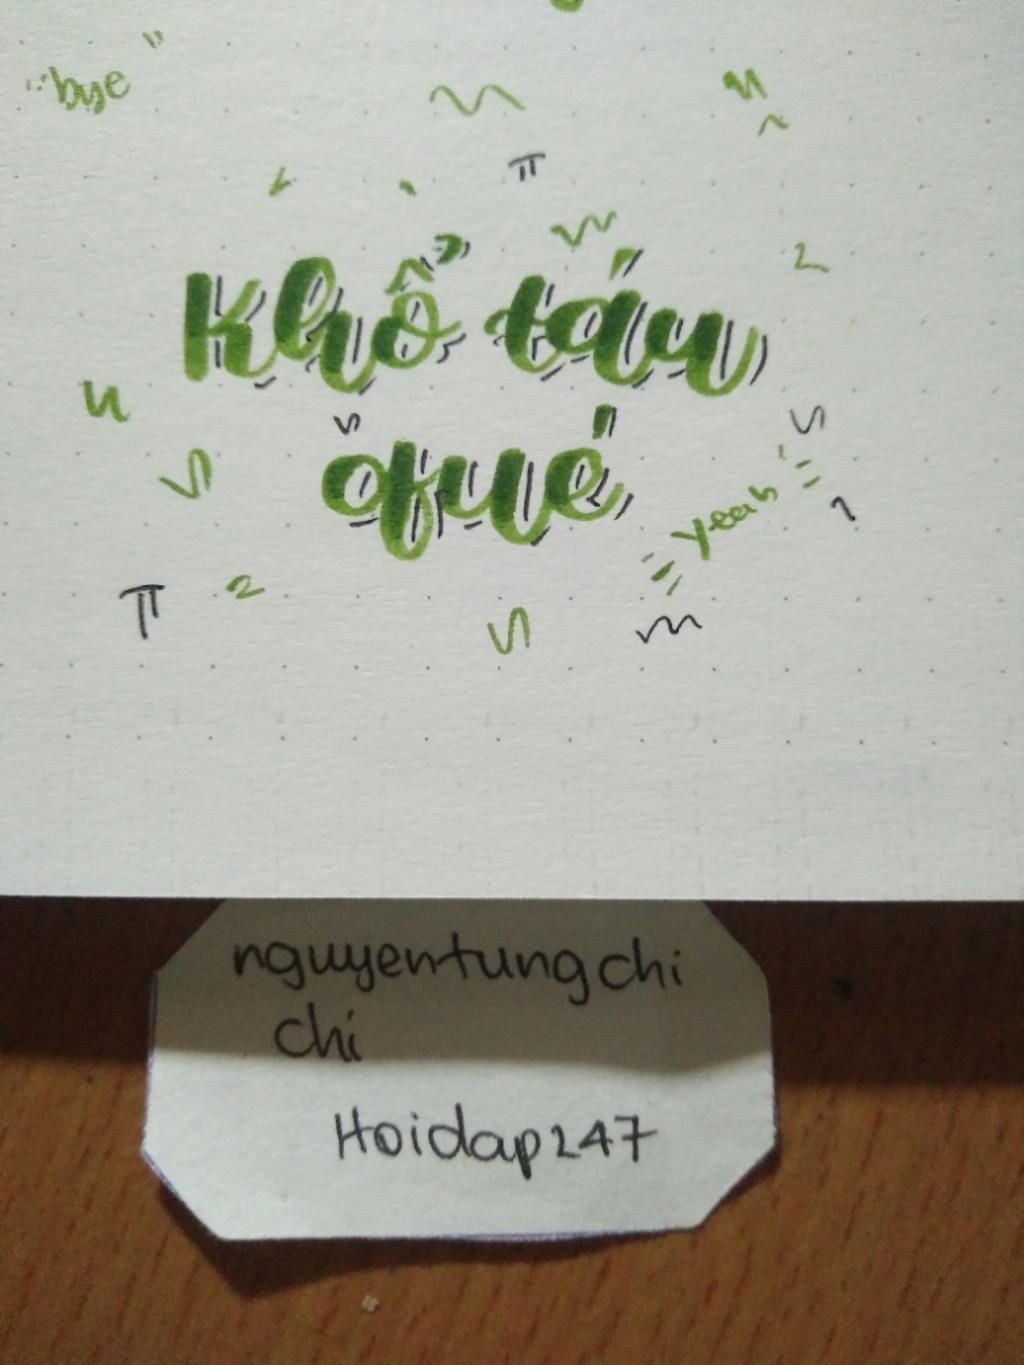 "bye"
Khổ táu
qué
yeah
nguyentungchi
chi
Hoidap247